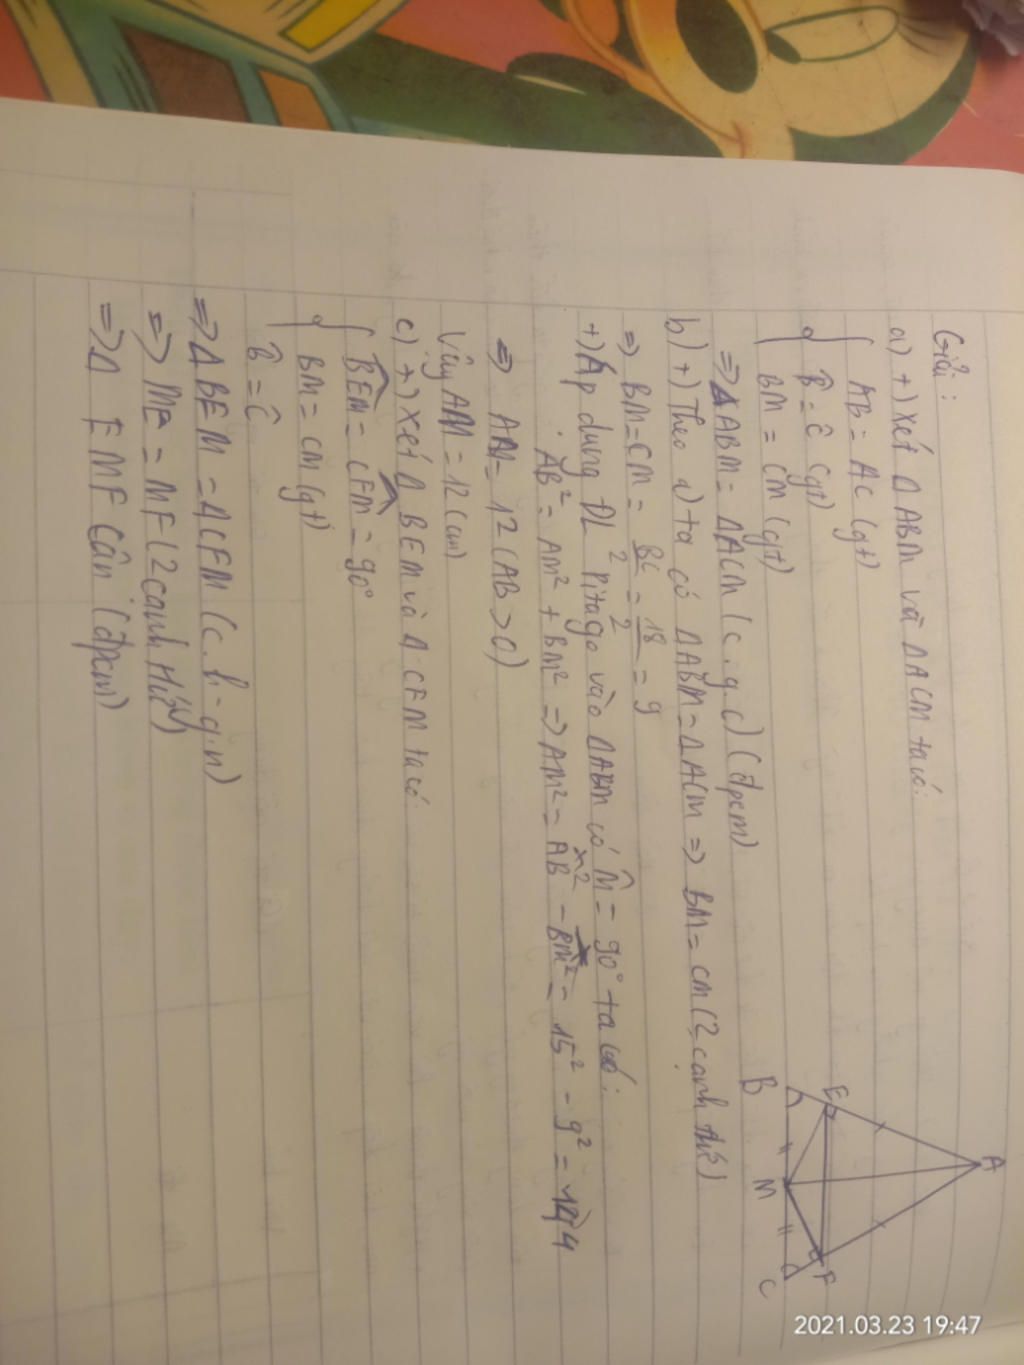 Giải:
a) +) Xét Δ ABM và Δ ACM ta có:
AB = AC (gt)
B̂ = Ĉ (gt)
BM = CM (gt)
=> Δ ABM = Δ ACM (c.g.c) (đpcm)
b) +) Theo a) ta có Δ ABM = Δ ACM => BM = CM (2 cạnh )
=> BM = CM = BC/2 = 18/2 = 9
+) Áp dụng ĐL Pitago vào Δ ABM có M̂ = 90° ta có:
AB² = AM² + BM² => AM² = AB² - BM² = 15² - 9² = 144
=> AM = 12 (AB > 0)
Vậy AM = 12 (cm)
c) +) Xét Δ BEM và Δ CFM ta có:
BEM = CFM = 90°
BM = CM (gt)
B̂ = Ĉ
=> Δ BEM = Δ CFM (c.h-g.n)
=> ME = MF (2 cạnh )
=> Δ EMF cân (đpcm)
A
E
F
B
M
C
2021.03.23 19:47